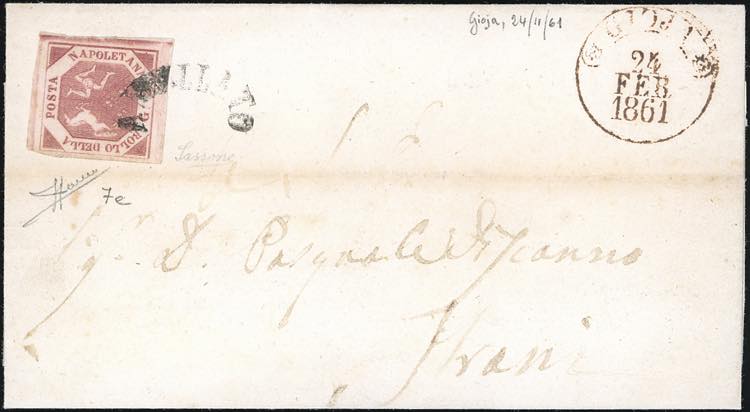 Gioja, 24/II/61
POSTA NAPOLETANA
BOLLO DELLA
G
ANNULLATO
GIOJA
24
FEB
1861
Sassone
7e
Sg.r D. Pasquale Di Joanno
Trani